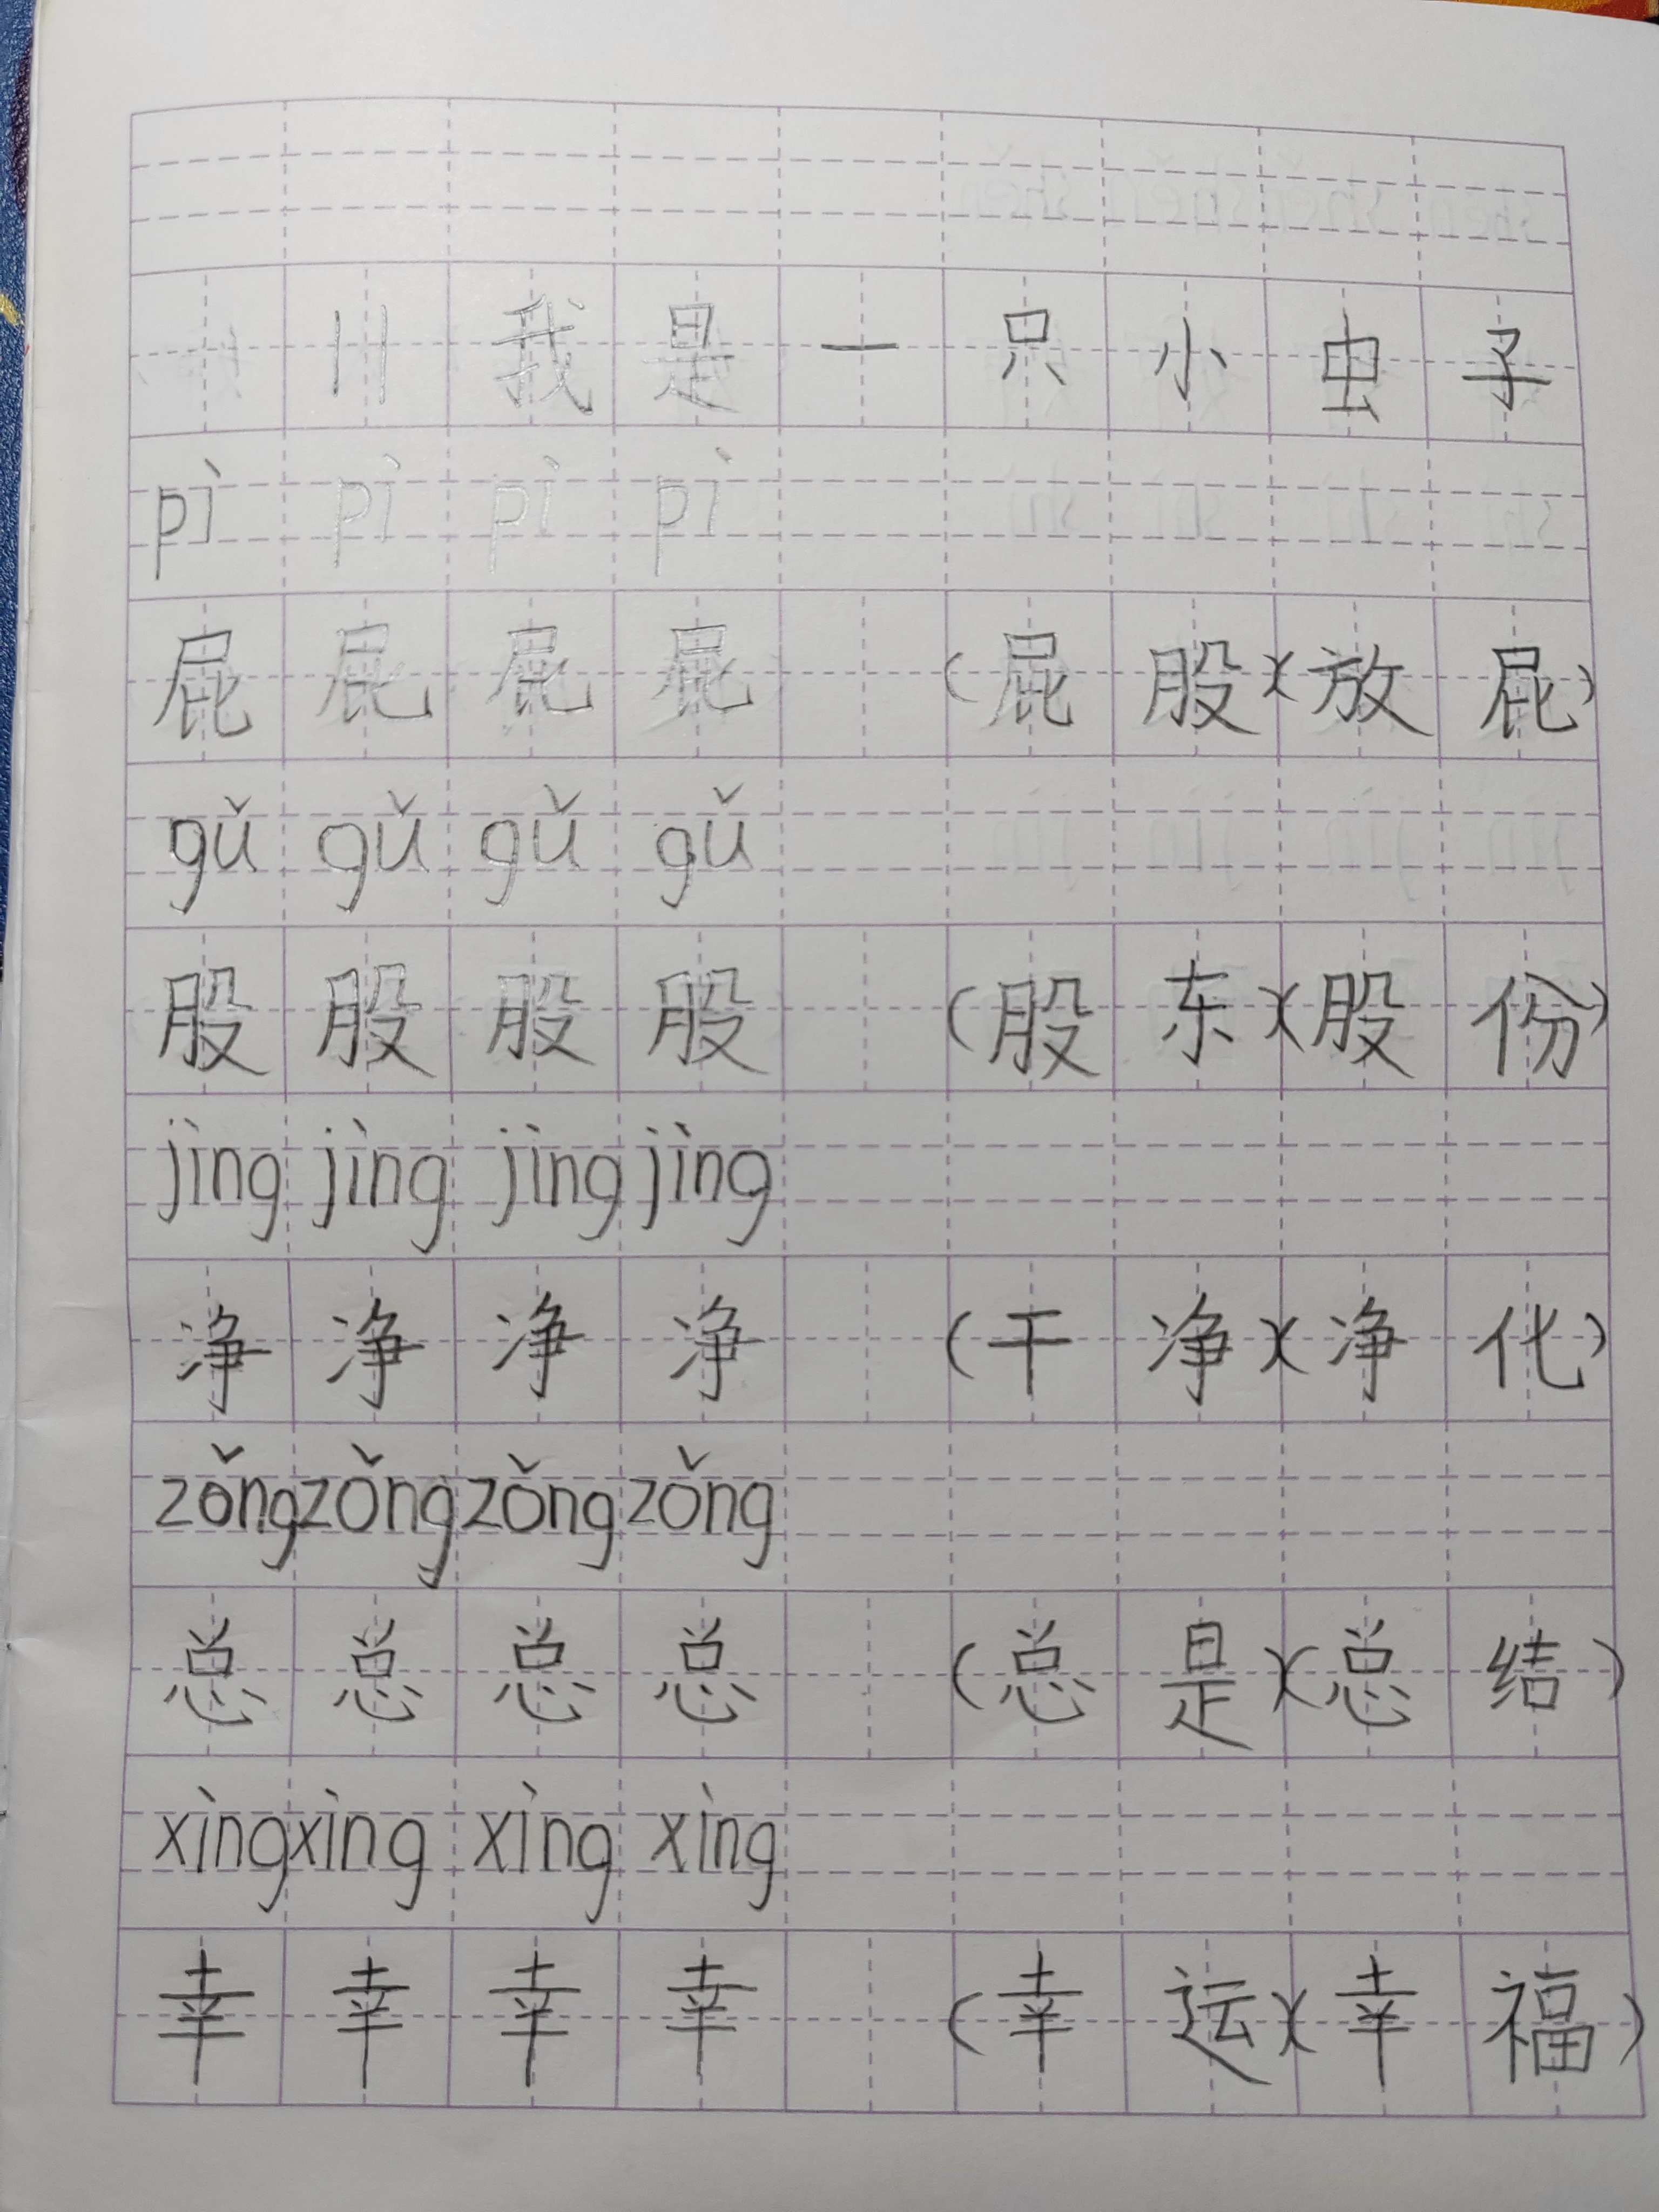 11 我是一只小虫子
pì pì pì pì
屁 屁 屁 屁 (屁股)(放屁)
gǔ gǔ gǔ gǔ
股 股 股 股 (股东)(股份)
jìng jìng jìng jìng
净 净 净 净 (干净)(净化)
zǒng zǒng zǒng zǒng
总 总 总 总 (总是)(总结)
xìng xìng xìng xìng
幸 幸 幸 幸 (幸运)(幸福)